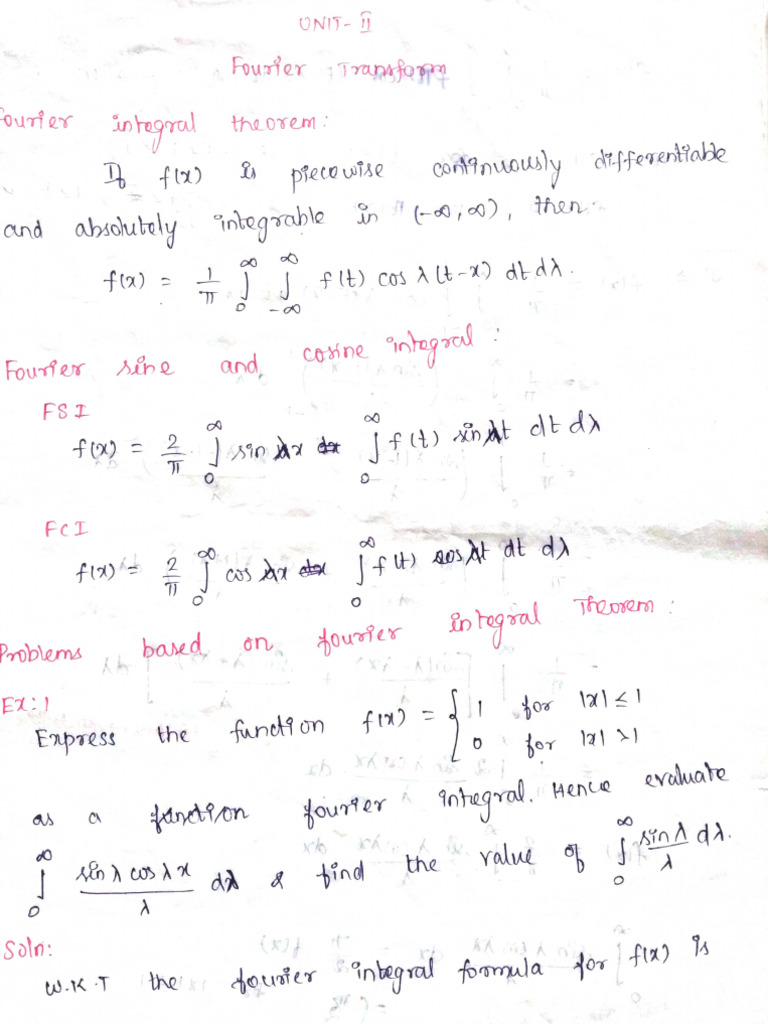 UNIT-II
Fourier Transform
Fourier integral theorem:
If f(x) is piecewise continuously differentiable
and absolutely integrable in (-∞, ∞), then
f(x) = 1/π ∫₀^∞ ∫_{-∞}^∞ f(t) cos λ(t-x) dt dλ.
Fourier sine and cosine integral:
FSI
f(x) = 2/π ∫₀^∞ sin λx ∫₀^∞ f(t) sin λt dt dλ
FCI
f(x) = 2/π ∫₀^∞ cos λx ∫₀^∞ f(t) cos λt dt dλ
Problems based on fourier integral Theorem:
Ex:1
Express the function f(x) = { 1 for |x| ≤ 1
0 for |x| > 1
as a function fourier integral. Hence evaluate
∫₀^∞ sin λ cos λx / λ dλ & find the value of ∫₀^∞ sin λ / λ dλ.
Soln:
W.K.T the fourier integral formula for f(x) is